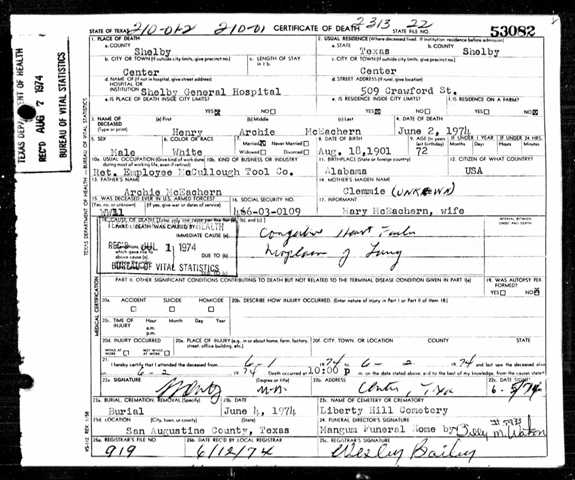 STATE OF TEXAS 210-012 210-01 CERTIFICATE OF DEATH 2313 22 STATE FILE NO. 53082
1. PLACE OF DEATH
a. COUNTY
Shelby
2. USUAL RESIDENCE (Where deceased lived. If institution: residence before admission)
a. STATE
Texas
b. COUNTY
Shelby
b. CITY OR TOWN (If outside city limits, give precinct no.)
Center
c. LENGTH OF STAY in 1 b
c. CITY OR TOWN (If outside city limits, give precinct no.)
Center
d. NAME OF (If not in hospital, give street address)
HOSPITAL OR INSTITUTION
Shelby General Hospital
d. STREET ADDRESS (If rural, give location)
509 Crawford St.
e. IS PLACE OF DEATH INSIDE CITY LIMITS?
YES NO
e. IS RESIDENCE INSIDE CITY LIMITS?
YES NO
f. IS RESIDENCE ON A FARM?
YES NO
3. NAME OF DECEASED (Type or print)
(a) First
Henry
(b) Middle
Archie
(c) Last
McEachern
4. DATE OF DEATH
June 2, 1974
5. SEX
Male
6. COLOR OR RACE
White
7. Married Never Married
Widowed Divorced
8. DATE OF BIRTH
Aug. 18, 1901
9. AGE (In years last birthday)
72
IF UNDER 1 YEAR
IF UNDER 24 HRS.
10a. USUAL OCCUPATION (Give kind of work done during most of working life, even if retired)
10b. KIND OF BUSINESS OR INDUSTRY
Ret. Employee McCullough Tool Co.
11. BIRTHPLACE (State or foreign country)
Alabama
12. CITIZEN OF WHAT COUNTRY?
USA
13. FATHER'S NAME
Archie McEachern
14. MOTHER'S MAIDEN NAME
Clemmie (UNKNOWN)
15. WAS DECEASED EVER IN U.S. ARMED FORCES?
(Yes, no, or unknown) (If yes, give war or dates of service)
16. SOCIAL SECURITY NO.
486-03-0109
17. INFORMANT
Mary McEachern, wife
18. CAUSE OF DEATH
PART I. DEATH WAS CAUSED BY:
IMMEDIATE CAUSE (a)
DUE TO (b)
Neoplasm of Lung
INTERVAL BETWEEN ONSET AND DEATH
REC'D JUL 1 1974
BUREAU OF VITAL STATISTICS
PART II. OTHER SIGNIFICANT CONDITIONS CONTRIBUTING TO DEATH BUT NOT RELATED TO THE TERMINAL DISEASE CONDITION GIVEN IN PART I(a)
19. WAS AUTOPSY PERFORMED?
YES NO
20a. ACCIDENT SUICIDE HOMICIDE
20b. DESCRIBE HOW INJURY OCCURRED. (Enter nature of injury in Part I or Part II of item 18.)
20c. TIME OF INJURY Hour Month Day Year
a.m.
p.m.
20d. INJURY OCCURRED
20e. PLACE OF INJURY (e.g. in or about home, farm, factory, street, office building, etc.)
20f. CITY, TOWN, OR LOCATION
COUNTY
STATE
21. I hereby certify that I attended the deceased from 6-1 1974 to 6-2 1974 and last saw the deceased alive
on 6-2 1974 Death occurred at 10:00 p m. on the date stated above, and to the best of my knowledge, from the causes stated.
22a. SIGNATURE
(Degree or title)
M.D.
22b. ADDRESS
Center, Texas
22c. DATE SIGNED
6-5/74
23a. BURIAL, CREMATION, REMOVAL (Specify)
Burial
23b. DATE
June 4, 1974
23c. NAME OF CEMETERY OR CREMATORY
Liberty Hill Cemetery
23d. LOCATION (City, town, or county) (State)
San Augustine County, Texas
24. FUNERAL DIRECTOR'S SIGNATURE
Mangum Funeral Home by Billy M. Watson
25a. REGISTRAR'S FILE NO.
919
25b. DATE REC'D BY LOCAL REGISTRAR
6/12/74
25c. REGISTRAR'S SIGNATURE
Wesley Bailey
TEXAS DEPARTMENT OF HEALTH
REC'D AUG 7 1974
BUREAU OF VITAL STATISTICS
MEDICAL CERTIFICATION